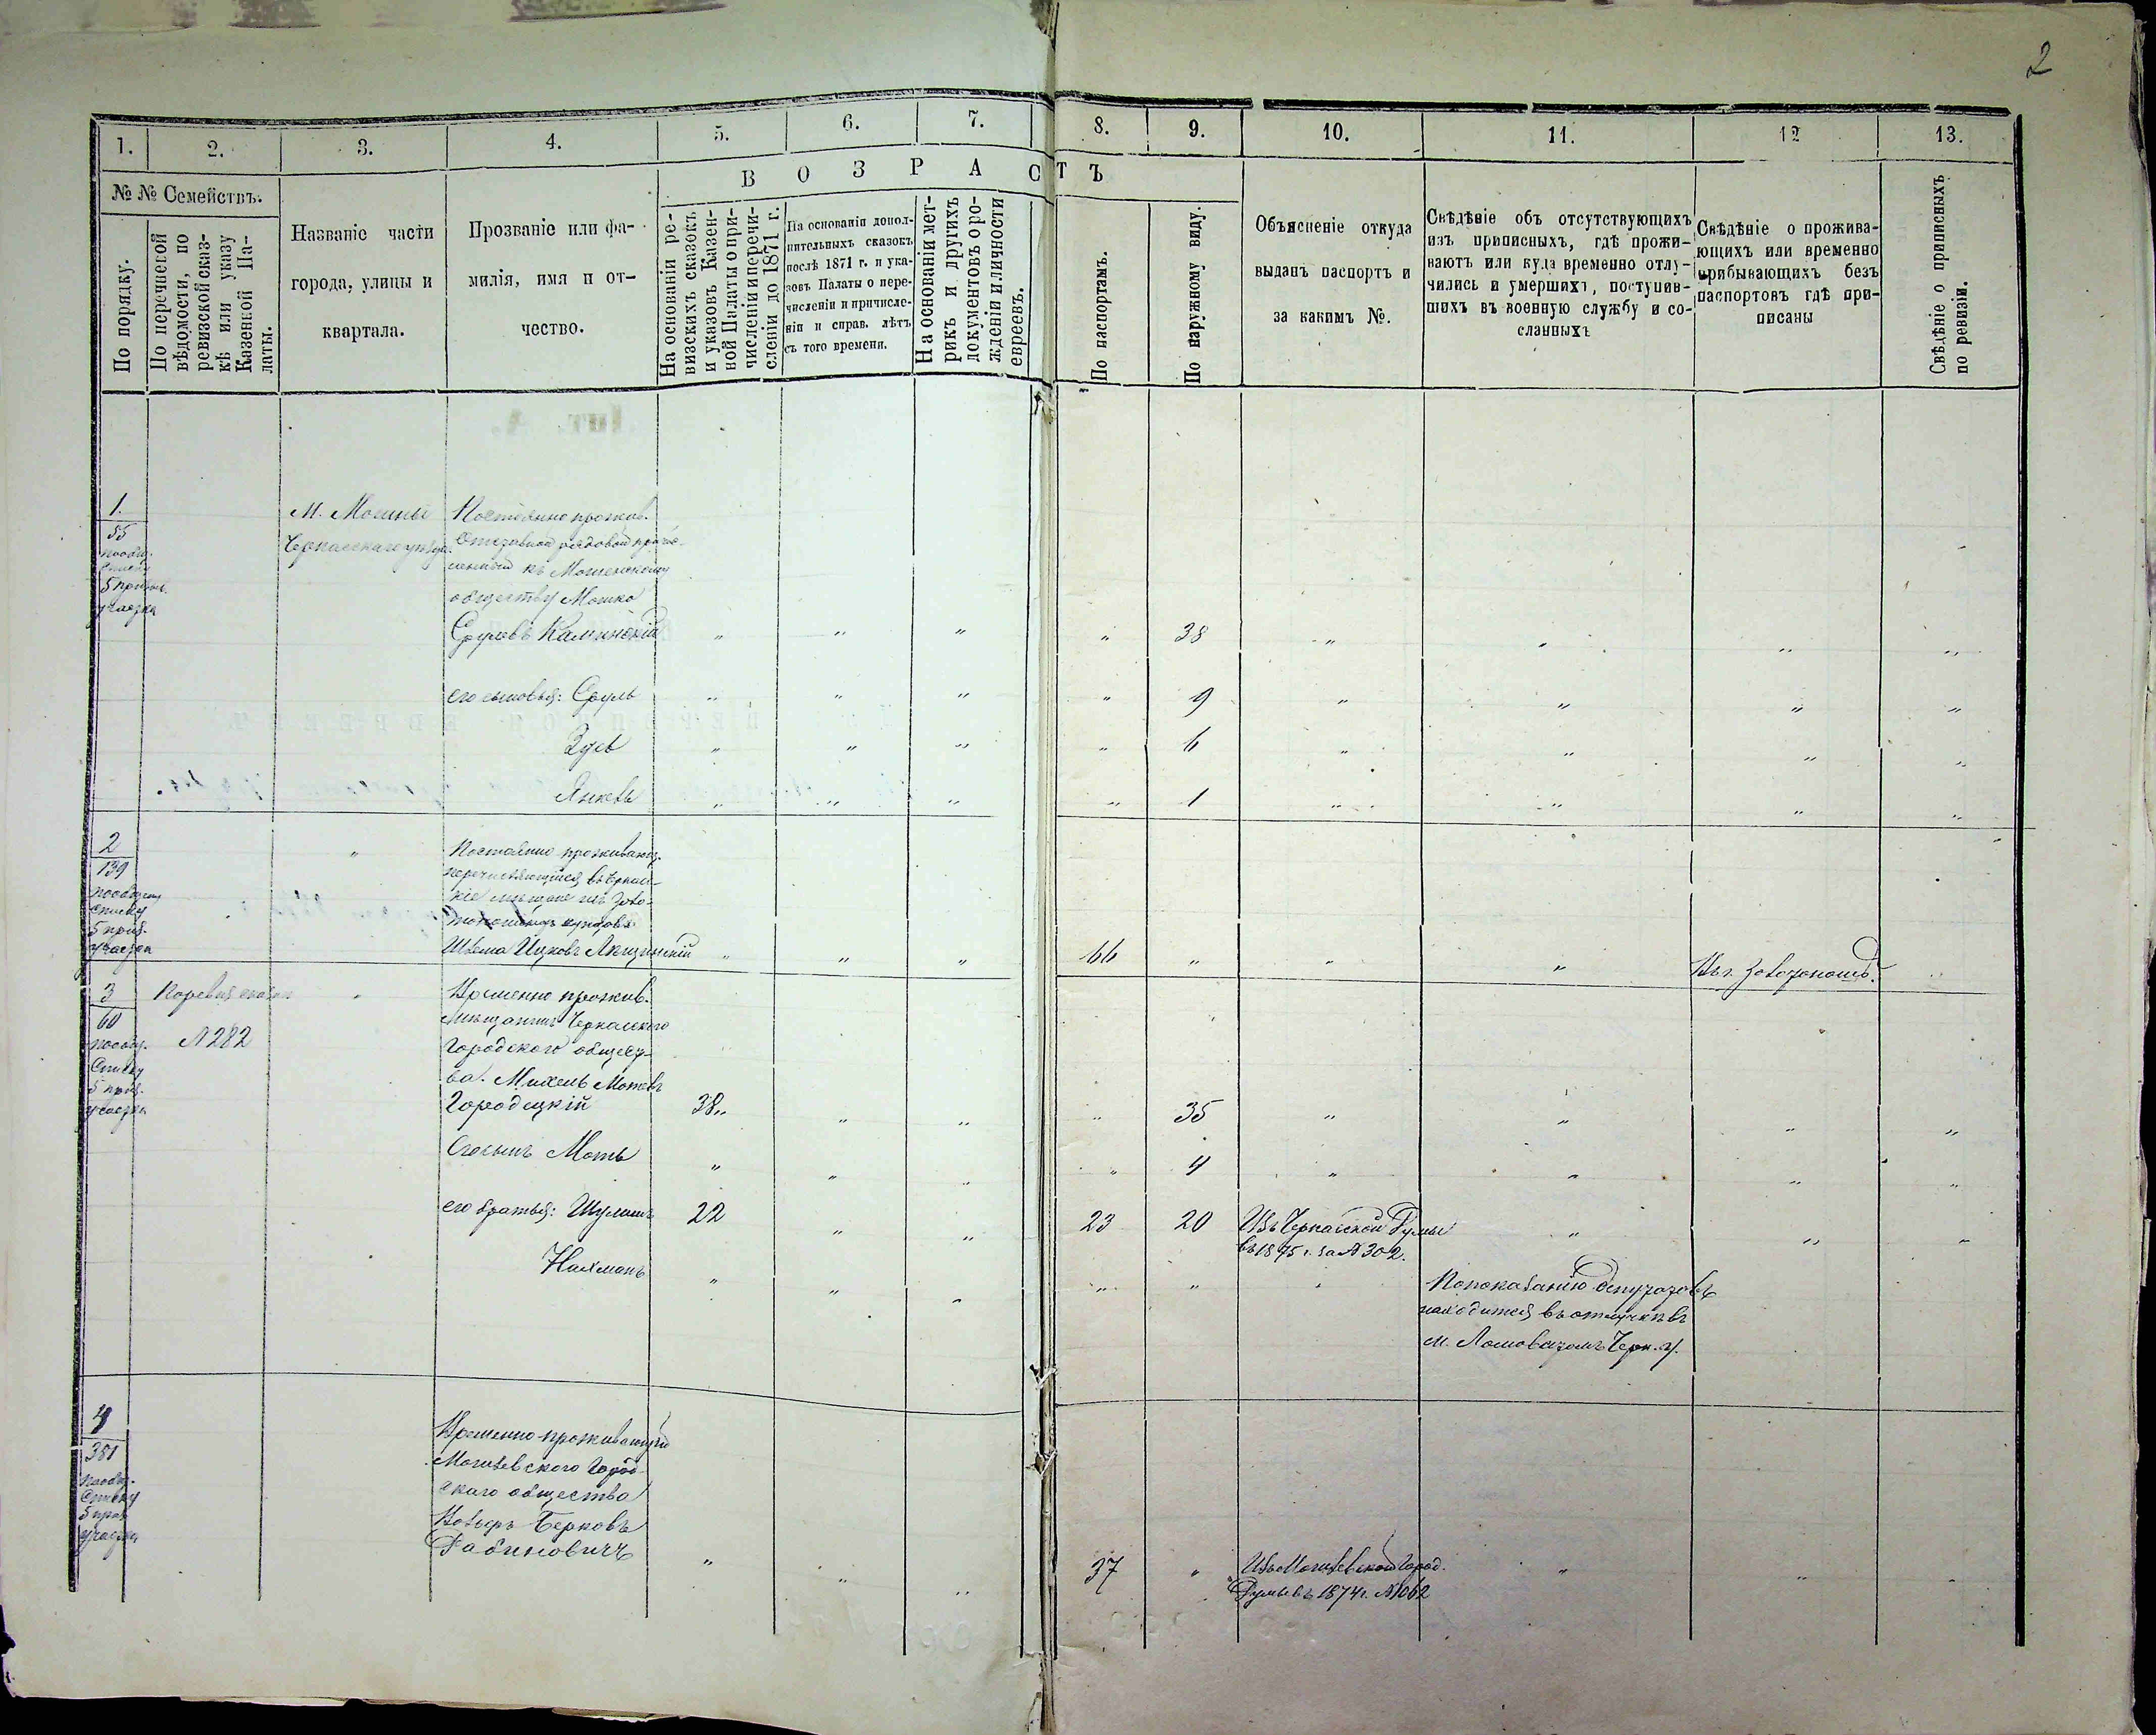 2
1.
2.
3.
4.
5.
6.
7.
8.
9.
10.
11.
12
13.
В О З Р А С Т Ъ
№ № Семействъ.
По порядку.
По перечневой
вѣдомости, по
ревизской сказ-
кѣ или указу
Казенной Па-
латы.
Названіе части
города, улицы и
квартала.
Прозваніе или фа-
милія, имя и от-
чество.
На основаніи ре-
визскихъ сказокъ
и указовъ Казен-
ной Палаты о при-
численіи и перечи-
сленіи до 1871 г.
На основаніи допол-
нительныхъ сказокъ
послѣ 1871 г. и ука-
зовъ Палаты о пере-
численіи и причисле-
ніи и справ. лѣтъ
съ того времени.
На основаніи мет-
рикъ и другихъ
документовъ о ро-
жденіи и личности
евреевъ.
По паспортамъ.
По наружному виду.
Объясненіе откуда
выданъ паспортъ и
за какимъ №.
Свѣдѣніе объ отсутствующихъ
изъ приписныхъ, гдѣ прожи-
ваютъ или куда временно отлу-
чились и умершихъ, поступив-
шихъ въ военную службу и со-
сланныхъ
Свѣдѣніе о прожива-
ющихъ или временно
прибывающихъ безъ
паспортовъ гдѣ при-
писаны
Свѣдѣніе о приписныхъ
по ревизіи.
1.
55
по общ.
списку
5 призыв.
участка
М. Мошны
Черкасскаго уѣзда
Постоянно прожив.
Отставной рядовой причис-
ленный къ Мошенскому
обществу Мошко
Сруловъ Каминскій " " " " 38 " " " "
его сыновья: Сруль " " " " 9 " " " "
Зусь " " " " 6 " " " "
Янкель " " " " 1 " " " "
2
139
по общему
списку
5 приз.
участка
"
Постоянно проживающ.
перечисляющійся въ Черкас-
кіе мѣщане изъ Золо-
тоношскихъ купцовъ
Шлема Ицковъ " " " 66 " " " Въ г. Золотонош.
3
60
по общ.
списку
5 приз.
участка
По ревиз. сказки
№ 282
"
Временно прожив.
Мѣщанинъ Черкасского
Городского общест-
ва. Михель Мотевъ
Городецкій 38 " " " " 35 " " " "
Его сынъ Моть " " " " 4 " " " "
его братья: Шулимъ 22 " " 23 20 Изъ Черкасской Думы " " "
въ 1875 г. за № 302.
Нахманъ " " " " " " По показанію депутатовъ
находится въ отлучкѣ въ
м. Ломоватомъ Черк. у.
4
381
по общ.
списку
5 приз.
участка
Временно-проживающій
Могилевского Город-
скаго общества
Берковъ
Рабиновичъ " " " 37 " Изъ Могилевской Город. " " "
Думы въ 1874 г. № 1062